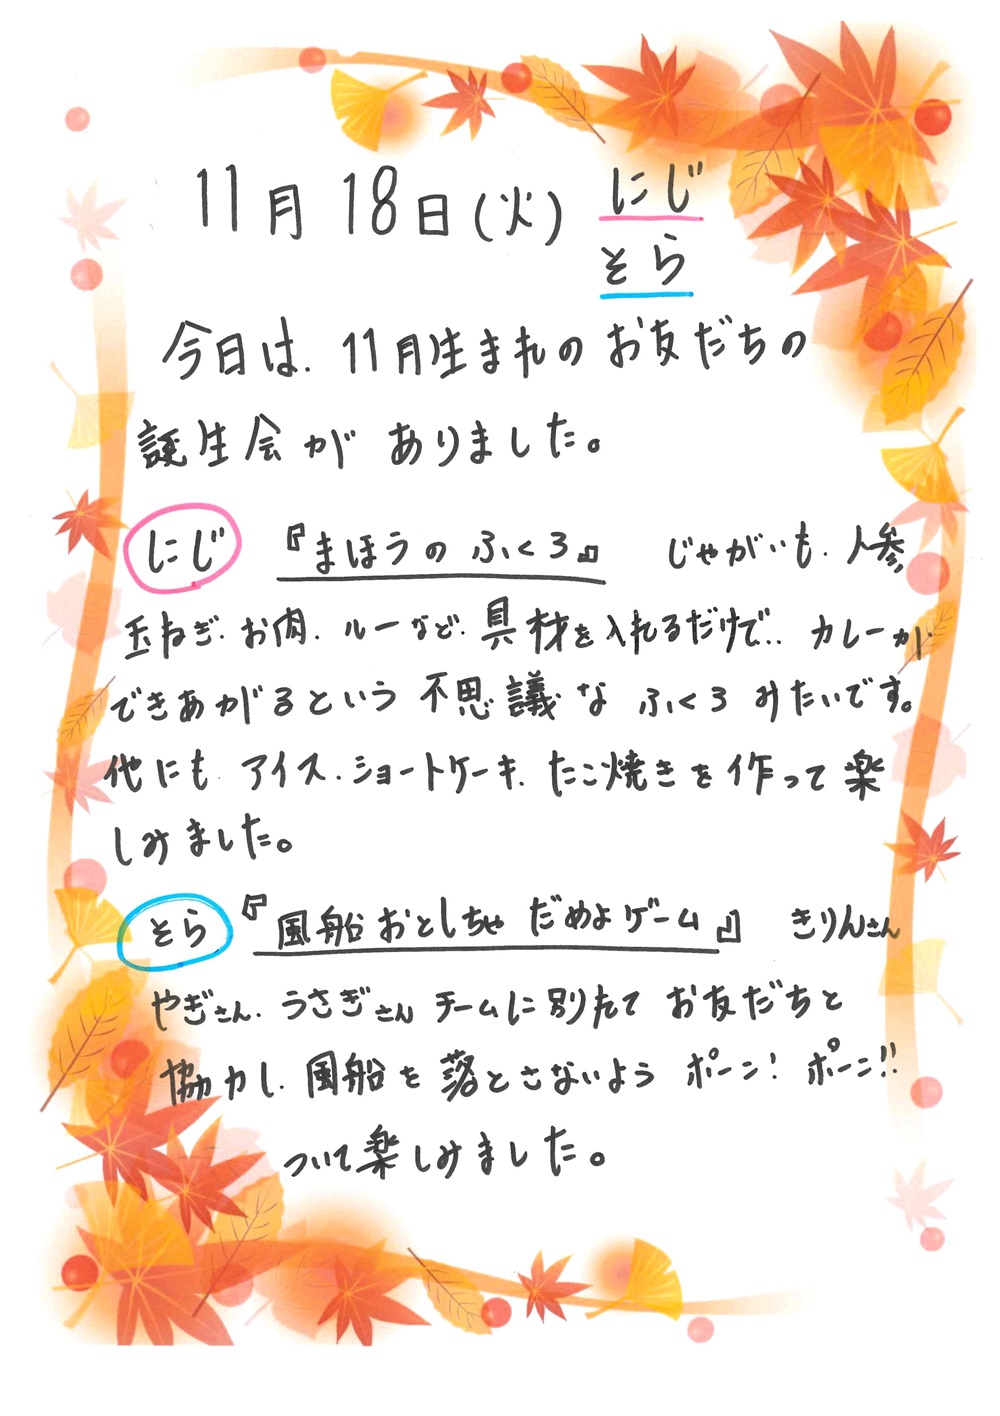 11月18日(火) にじ
そら
今日は、11月生まれのお友だちの
誕生会がありました。
にじ 『まほうのふくろ』 じゃがいも、人参、
玉ねぎ、お肉、ルーなど、具材を入れるだけで、、カレーが
できあがるという不思議なふくろみたいです。
他にも、アイス、ショートケーキ、たこ焼きを作って楽
しみました。
そら 『風船おとしちゃだめよゲーム』 きりんさん
やぎさん、うさぎさんチームに別れてお友だちと
協力し、風船を落とさないようポーン!ポーン!!
ついて楽しみました。